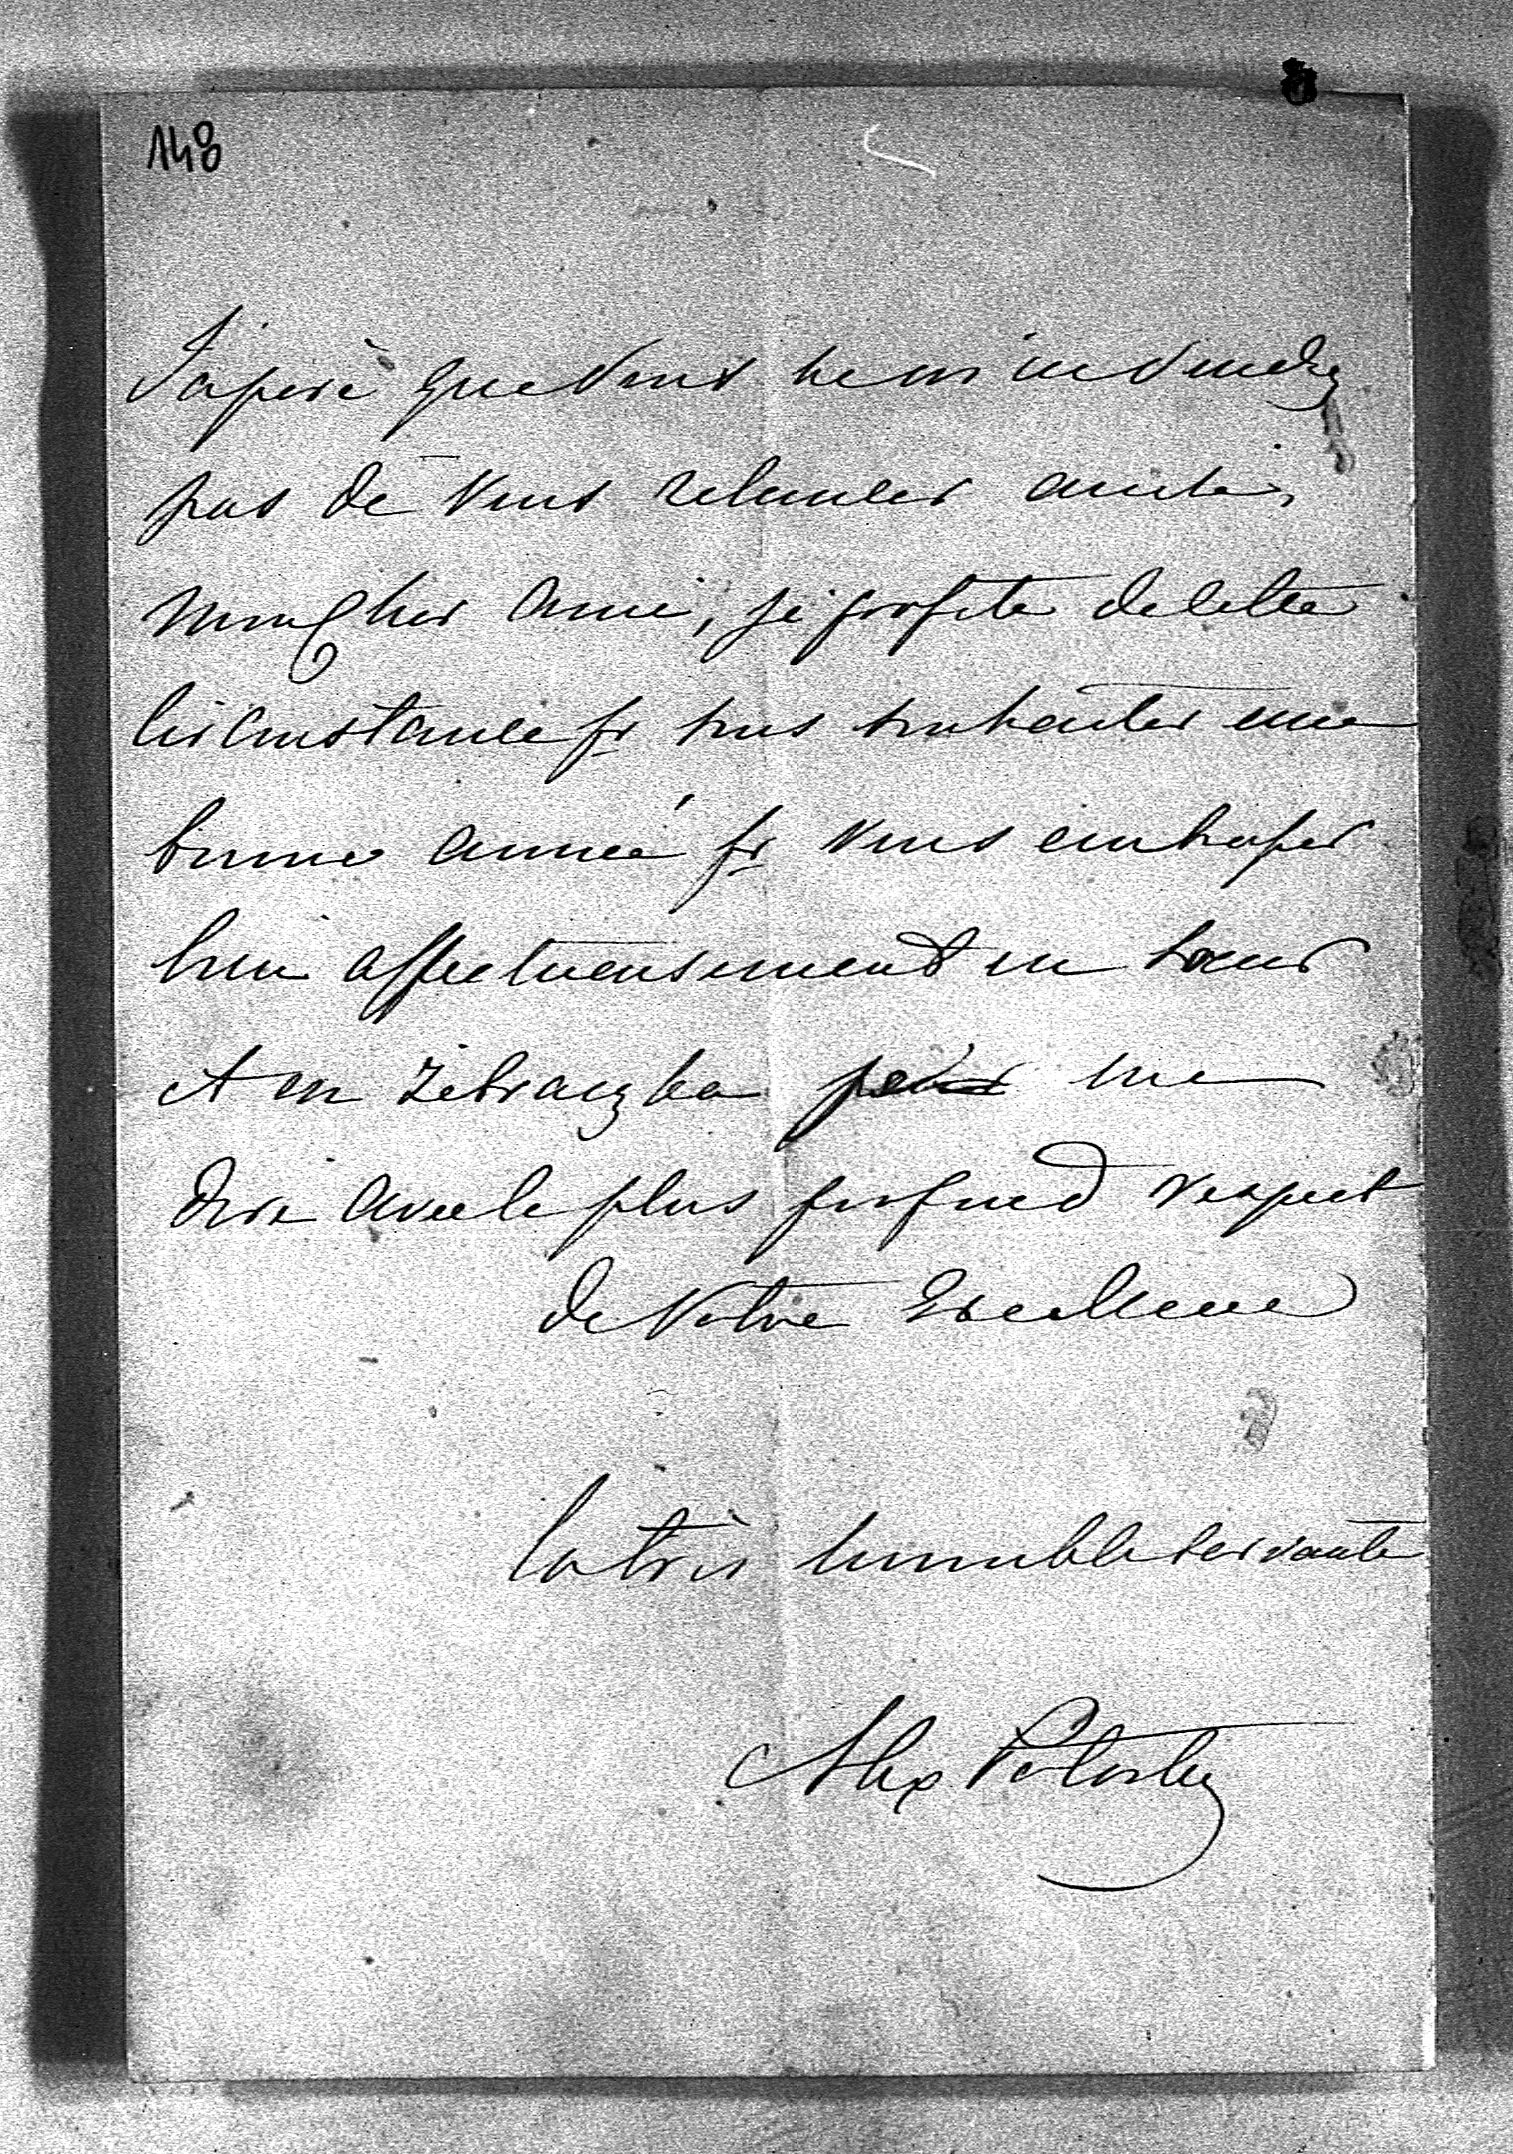 148
J'espère que vous ne m'en voudrez
pas de vous relancer ainsi,
mon cher Ami, je profite de cette
circonstance pr vous souhaiter une
bonne année pr vous embrasser
bien affectueusement en soeur
et en żebraczka pour me
dire avec le plus profond respect
de Votre Excellence
la très humble servante
Alex Potocky